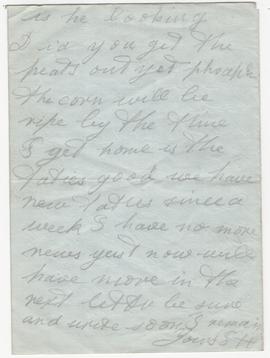 is he looking
Did you get the
peats out yet phraps
the corn will be
ripe by the time
I get home is the
taties good we have
new taties since a
week I have no more
news yust now will
have more in the
next letter be sure
and write soon I remain
yours H